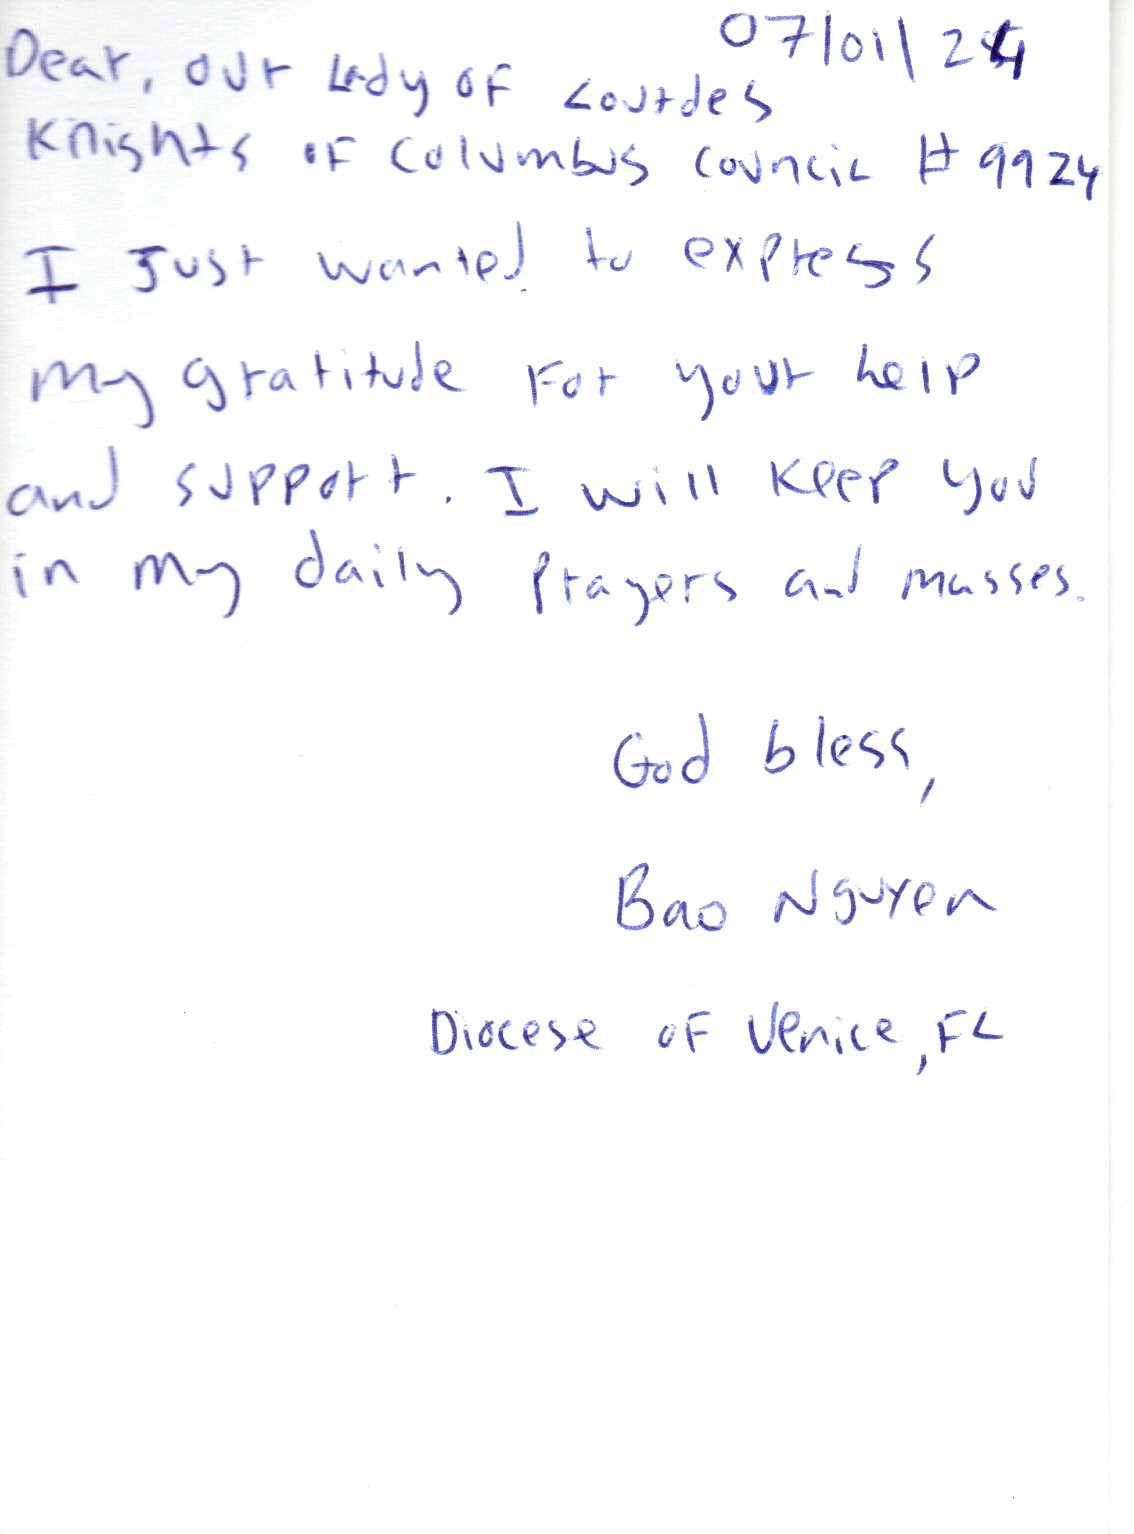 07/01/24
Dear, Our Lady of Lourdes
Knights of Columbus Council #9924
I Just wanted to express
my gratitude For your help
and support. I will keep you
in my daily Prayers and masses.
God bless,
Bao Nguyen
Diocese of Venice, FL